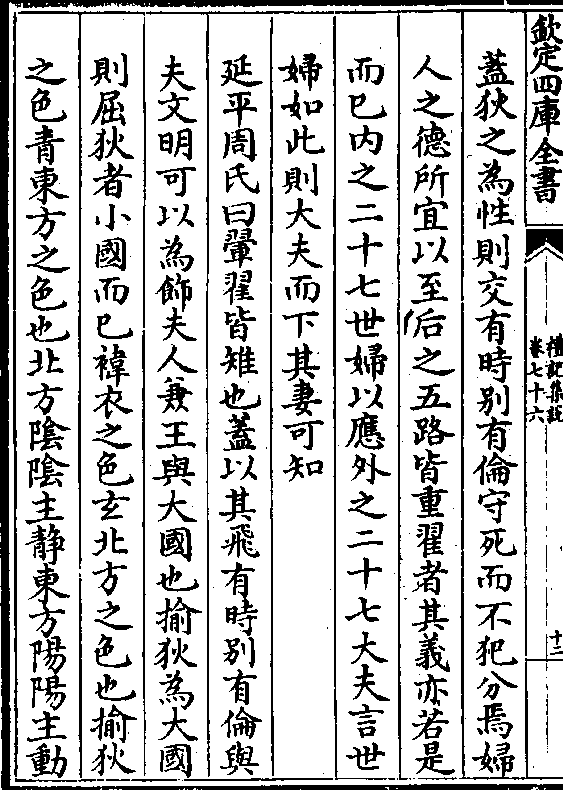 欽定四庫全書
禮記集說
卷七十六
十二
蓋狄之為性則交有時别有倫守死而不犯分焉婦
人之德所宜以至后之五路皆重翟者其義亦若是
而已内之二十七世婦以應外之二十七大夫言世
婦如此則大夫而下其妻可知
延平周氏曰翬翟皆雉也蓋以其飛有時别有倫與
夫文明可以為飾夫人兼王與大國也揄狄為大國
則屈狄者小國而已褘衣之色玄北方之色也揄狄
之色青東方之色也北方隂隂主静東方陽陽主動